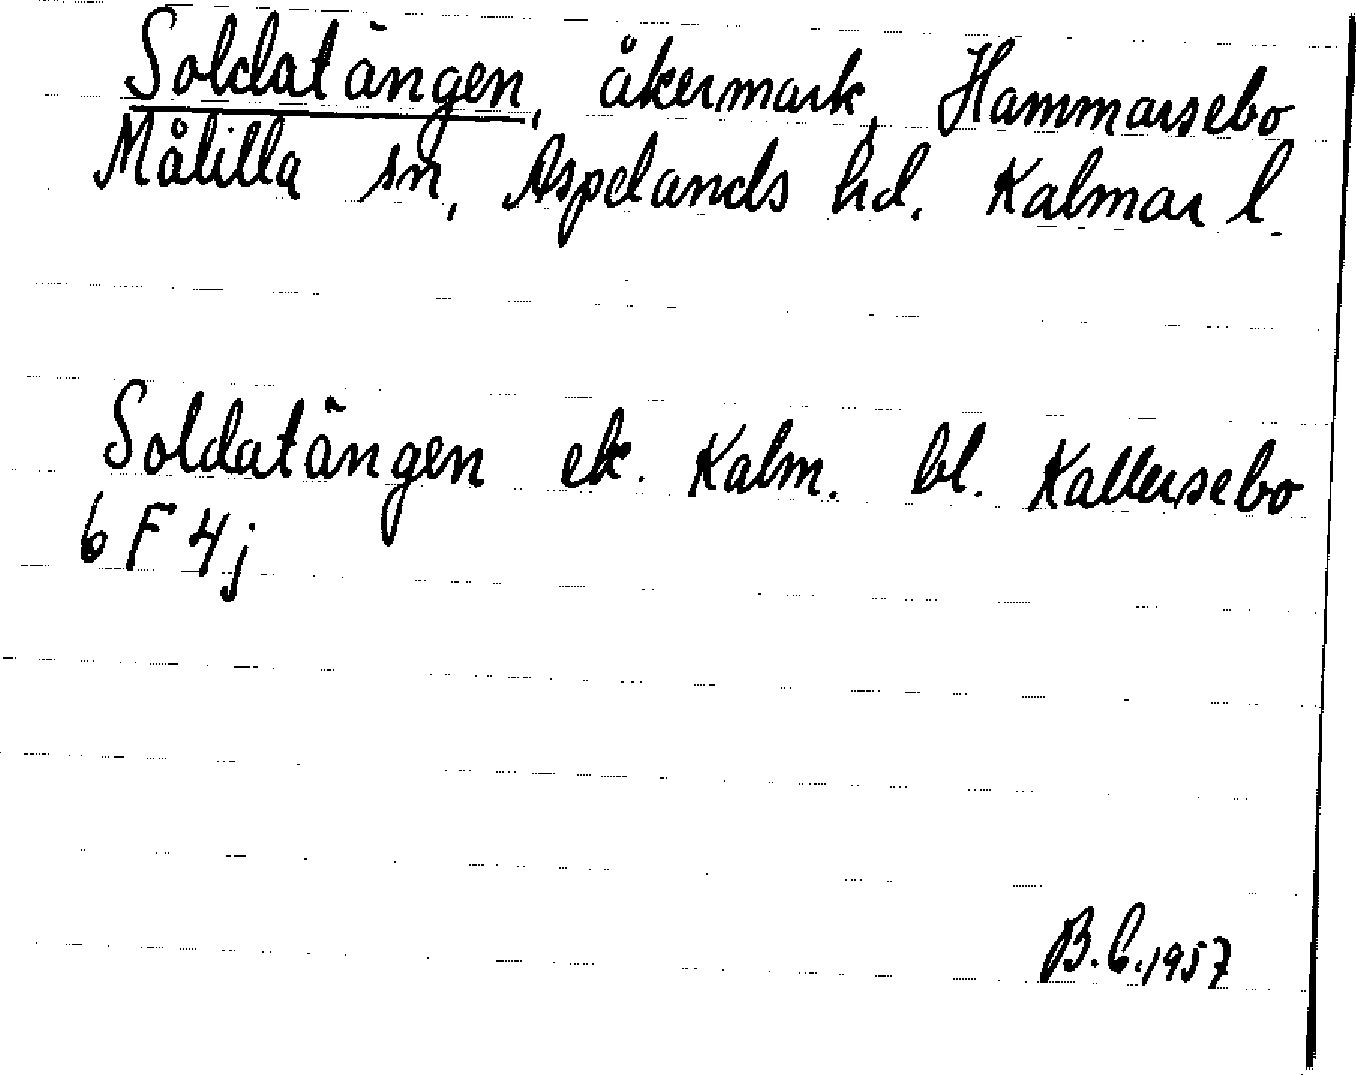 Soldatängen, åkermark, Hammarsebo,
Målilla sn, Aspelands hd. Kalmar l.
Soldatängen ek. Kalm. bl. Kallersebo
6 F 4j
B.C.1957